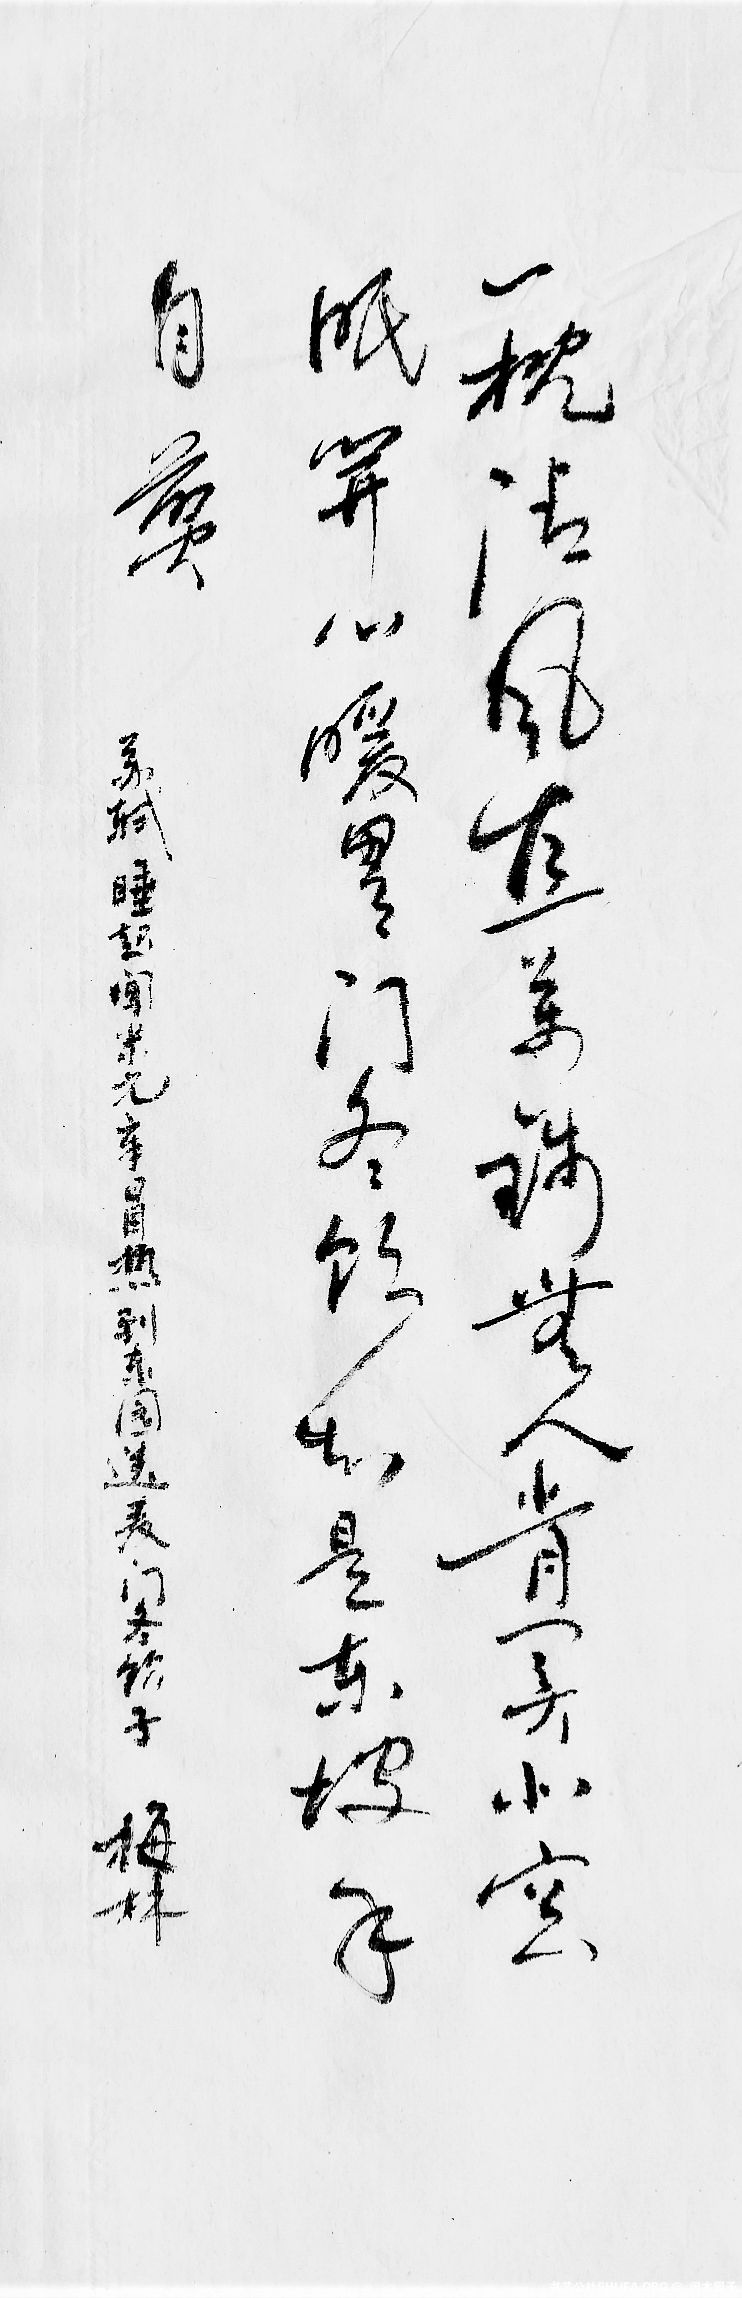 一枕清风直萬錢無人肯買北窗
眠開心暖胃门冬飲知是东坡手
自煎
苏轼睡起闻米元章冒热到东园送麦门冬饮子 梅林